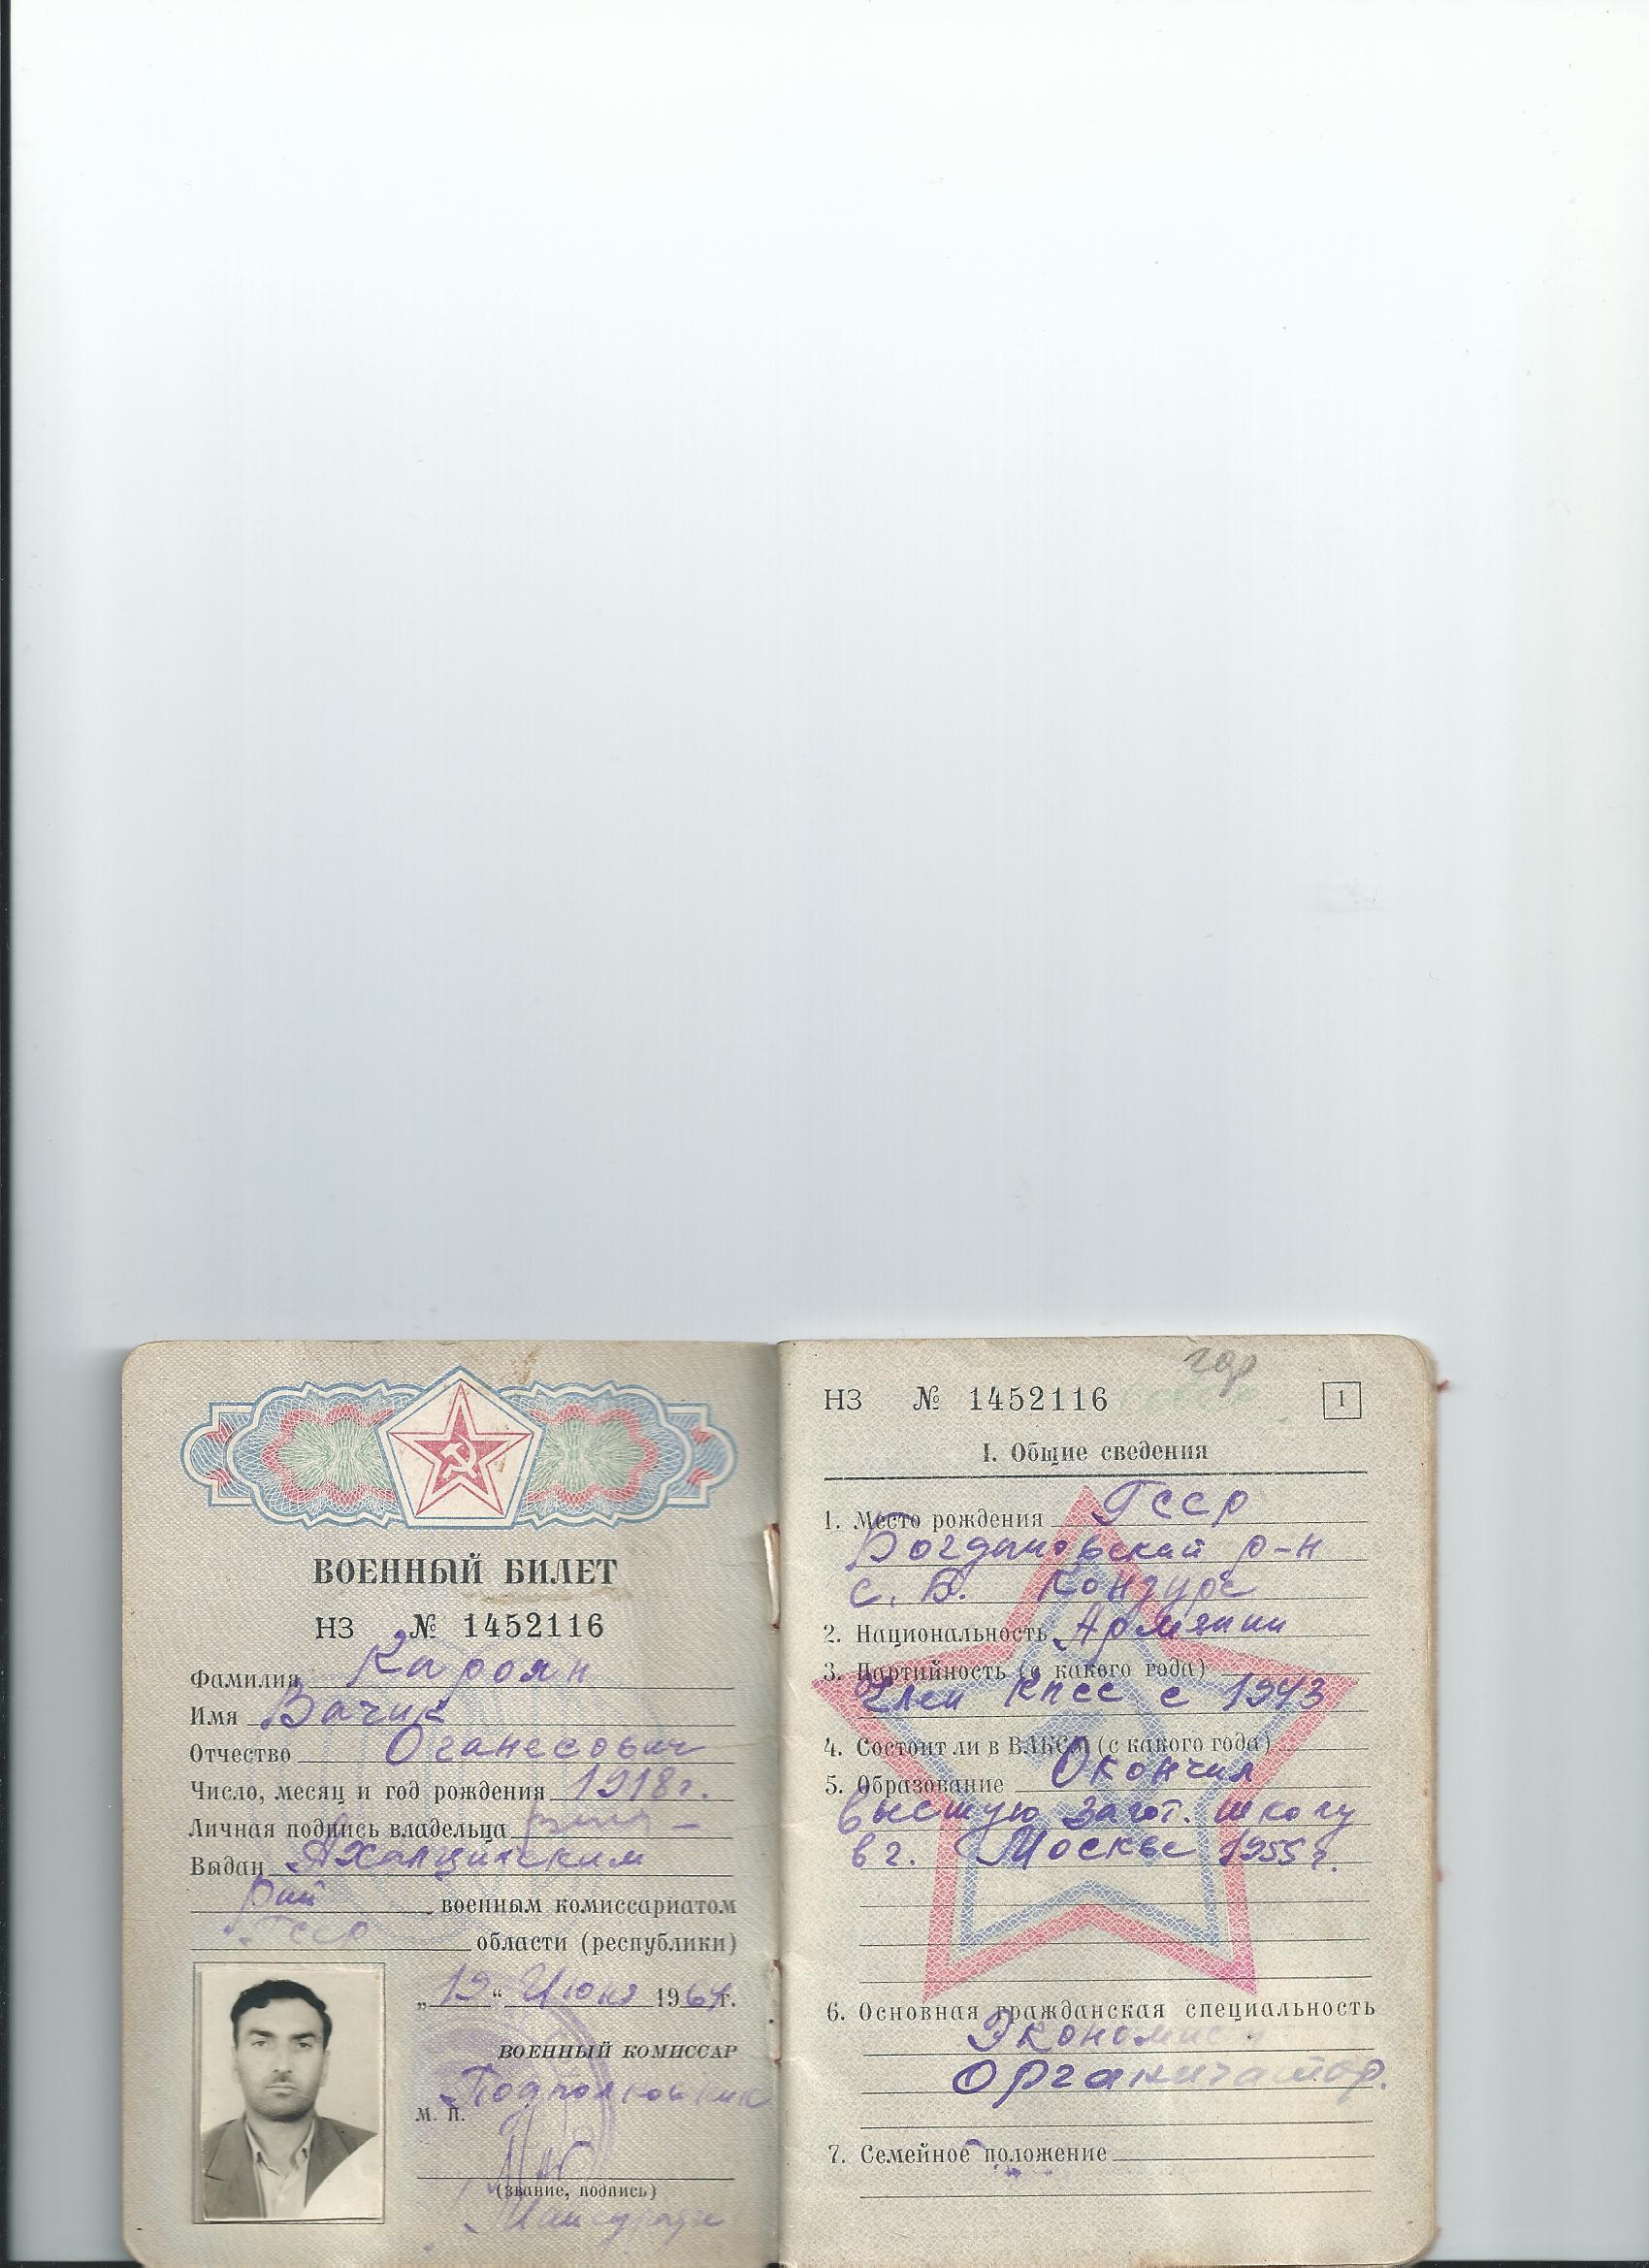 ВОЕННЫЙ БИЛЕТ
НЗ № 1452116
Фамилия Кароян
Имя Вачик
Отчество Оганесович
Число, месяц и год рождения 1918г.
Личная подпись владельца
Выдан Ахалцихским
рай военным комиссариатом
ГССР области (республики)
„19“ Июня 1964г.
ВОЕННЫЙ КОМИССАР
Подполковник
М. П.
(звание, подпись)
НЗ № 1452116
1
I. Общие сведения
1. Место рождения ГССР
Богдановский р-н
с. Б. Кондура
2. Национальность Армянин
3. Партийность (с какого года)
Член КПСС с 1943
4. Состоит ли в ВЛКСМ (с какого года)
5. Образование Окончил
высшую загот. школу
в г. Москве 1955 г.
6. Основная гражданская специальность
Экономист
Организатор.
7. Семейное положение